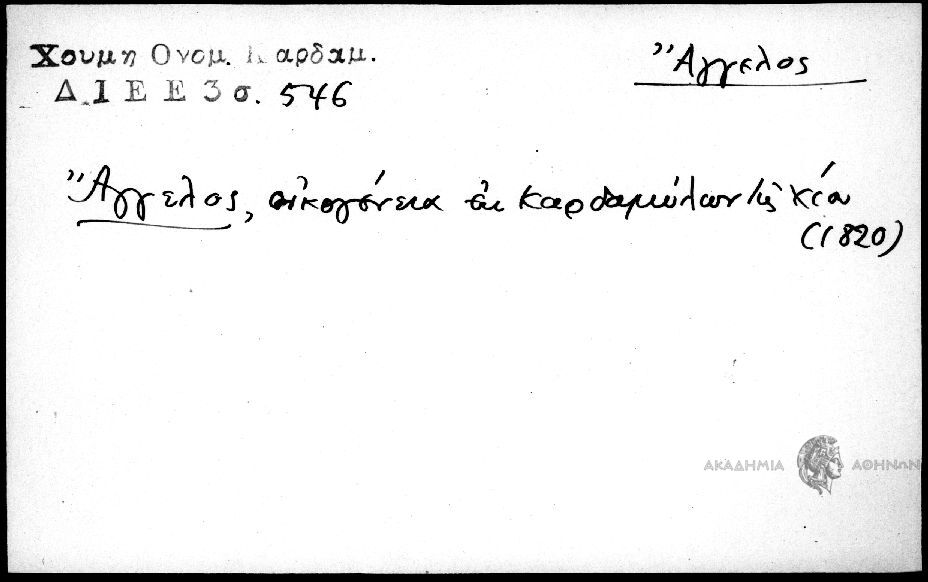 Χουμη Ονομ. Καρδαμ.
Δ.Ι Ε Ε 3 σ. 546
Ἄγγελος
Ἄγγελος, οἰκογένεια ἐκ Καρδαμύλων τῆς Χίου
(1820)
ΑΚΑΔΗΜΙΑ ΑΘΗΝΩΝ